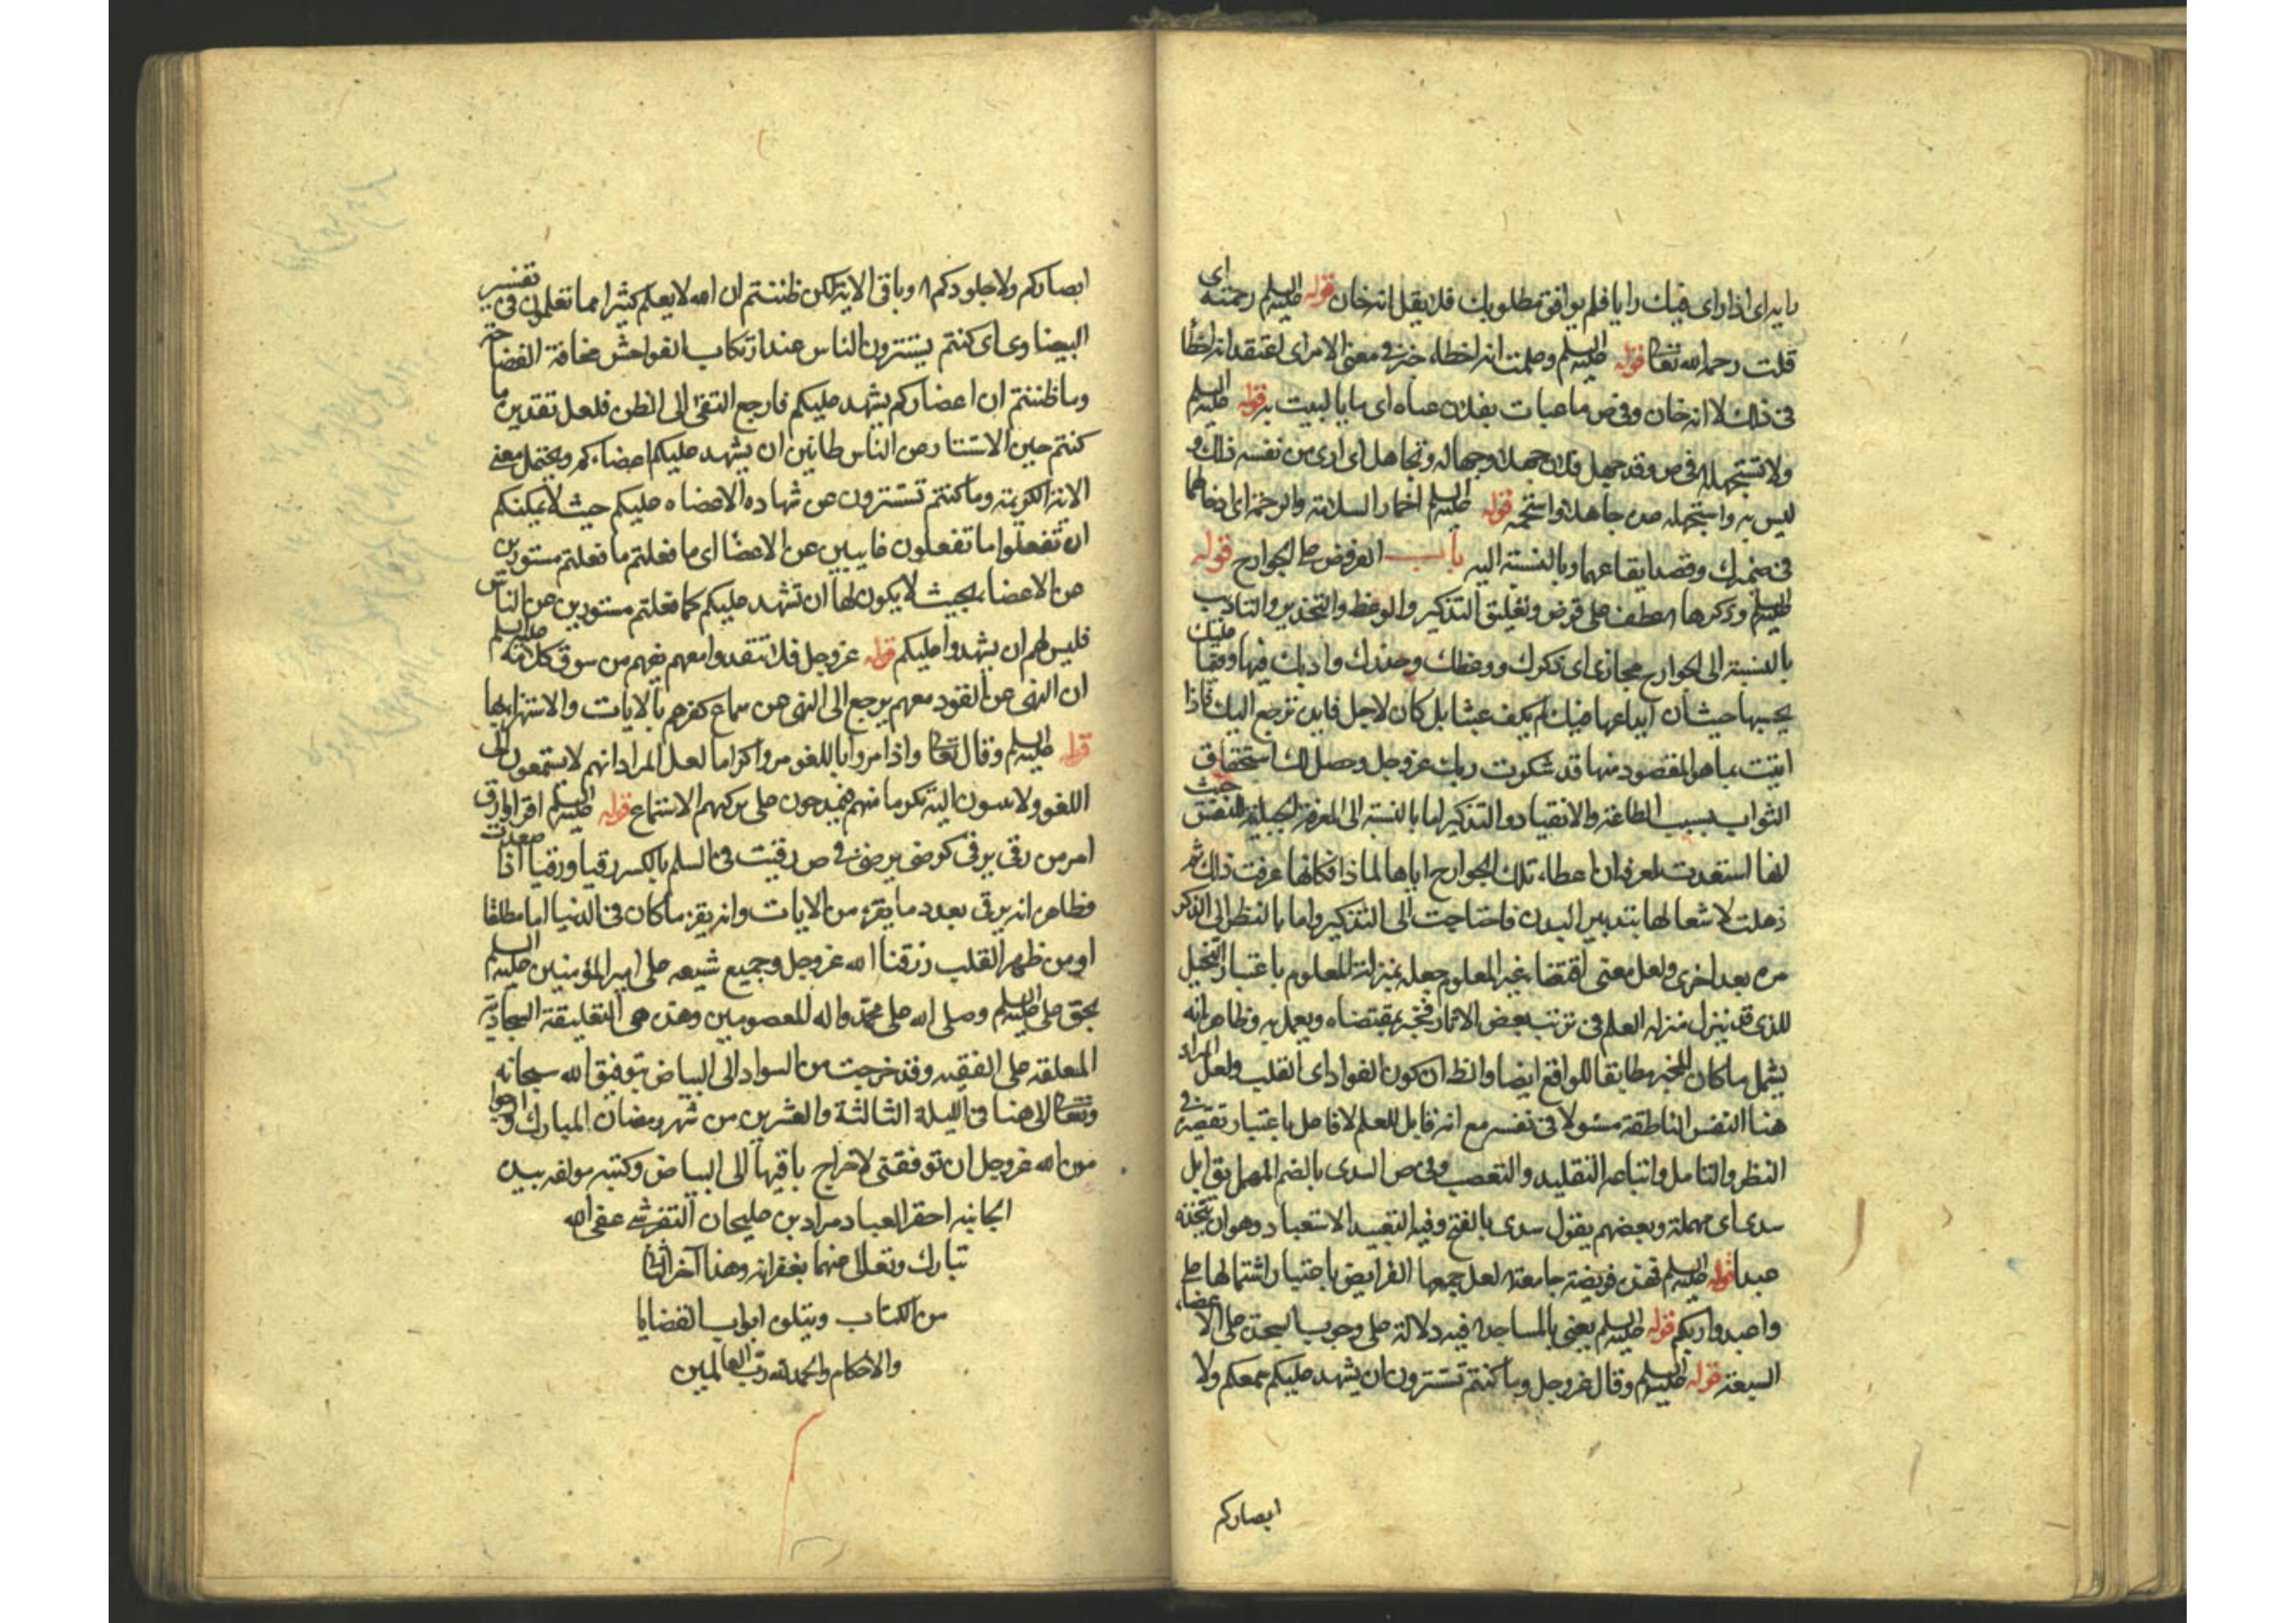 رايه اى اذا راى فيك رايا فلم يوافق مطلوبك فلا يقل انه خان قوله عليه السلم رحمته اى
قلت رحمه الله تعالى قوله عليه السلم وعلمت انه اخطاء خبر فى معنى الامر اى اعتقد انه اخطأ
فى ذلك لا انه خان وفى ص ما عبات بفلان عباه اى ما باليت به قوله عليه السلم
ولا تستجهله فى ص وقد جهل فلان جهلا وجهالة وتجاهل اى ارى من نفسه ذلك و
ليس به واستجهله عده جاهلا واستخفه قوله عليه السلم اضمار السلامة والرحمة اى اخطارهما
فى ضميرك وقصد ايقاعهما وبالنسبة اليه باب الفروض على الجوارح قوله
عليه السلم وذكرها عطف على فرض وتعليق التذكير والوعظ والتحذير والتاديب
بالنسبة الى الجوارح مجازى اى ذكرك ووعظك وحذرك وادبك فيها وفيما عليك
يحبها حيث ان ايداعها فيك لم يكن عبثا بل كان لاجل فايدة ترجع اليك فاذا
اتيت بما هو المقصود منها قد شكرت ربك عز وجل وحصل لك استحقاق
الثواب بسبب الطاعة والانقياد والتذكير اما بالنسبة الى المعرفة الجبلية للنفس حيث
انها استعدت لمعرفة ان اعطاء تلك الجوارح اياها لماذا فكانها عرفت ذلك ثم
ذهلت لاشتغالها بتدبير البدن فاحتاجت الى التذكير واما بالنظر الى الذكر
مرة بعد اخرى ولعل معنى اقتفاء غير المعلوم جعله بمنزلة المعلوم باعتبار التخيل
الذى قد ينزل منزلة العلم فى ترتب بعض الاثار فيخبر بمقتضاه ويعمل به وظاهر انه
يشمل ما كان المخبر مطابقا للواقع ايضا والظ ان كون الفواد اى القلب ولعل المراد
هنا النفس الناطقة مسئولا فى نفسه مع انه قابل للعلم لا فاعل باعتبار تقصيره فى
النظر والتامل واتباعه التقليد والتعصب وفى ص السدى بالضم المهمل يق ابل
سدى اى مهملة وبعضهم يقول سدى بالفتح وفيه التعبيد الاستعباد وهو ان يتخذه
عبدا قوله عليه السلم فهذه فريضة جامعة لعل جمعها الفرايض باعتبار اشتمالها على
واعبدوا ربكم قوله عليه السلم يعنى بالمساجد فيه دلالة على وجوب السجدة على الاعضاء
السبعة قوله عليه السلم وقال عز وجل وما كنتم تستترون ان يشهد عليكم سمعكم ولا
ابصاركم
ابصاركم ولا جلودكم وباقى الاية لكن ظننتم ان الله لا يعلم كثيرا مما تعملون فى تفسير
البيضاوى اى كنتم تستترون الناس عند ارتكاب الفواحش مخافة الفضاحة
وما ظننتم ان اعضاءكم يشهد عليكم فارجع النفى الى الظن فلعل تقديره ما
كنتم حين الاستتار من الناس ظانين ان يشهد عليكم اعضاءكم ويحتمل معنى
الاية الكريمة وما كنتم تستترون عن شهادة الاعضاء عليكم حيث لا يمكنكم
ان تفعلوا ما تفعلون غايبين عن الاعضا اى ما فعلتم ما فعلتم مستورين
عن الاعضاء بحيث لا يكون لها ان تشهد عليكم كما فعلتم مستورين عن الناس
فليس لهم ان يشهدوا عليكم قوله عز وجل فلا تقعدوا معهم يفهم من سوق كلامه عليه السلم
ان النهى عن القعود معهم يرجع الى النهى عن سماع كفرهم بالايات والاستهزاء بها
قوله عليه السلم وقال تعالى واذا مروا باللغو مروا كراما لعل المراد انهم لا يستمعون الى
اللغو ولا يميلون اليه تكرما منهم فيمدحون على تركهم الاستماع قوله عليه السلم اقرا وارق
امر من رقى يرقى كرضى يرضى فى ص رقيت فى السلم بالكسر رقيا ورقيا اذا صعدت
وظاهره انه يرقى بعدد ما يقرء من الايات وانه يقرء ما كان فى الدنيا اما مطلقا
او من ظهر القلب رزقنا الله عز وجل وجميع شيعة على امير المؤمنين عليه السلم
بحق على عليه السلم وصلى الله على محمد واله المعصومين وهذه هى التعليقة السجادية
المعلقة على الفقيه وقد خرجت من السواد الى البياض بتوفيق الله سبحانه
وتعالى الى هنا فى الليلة الثالثة والعشرين من شهر رمضان المبارك وارجوا
من الله عز وجل ان توفقنى لاخراج باقيها الى البياض وكتبه مولفه بيده
الجانية احقر العباد مراد بن عليخان التفرشى عفى الله
تبارك وتعالى عنهما بغفرانه وهذا آخر الثالث
من الكتاب ويتلوه ابواب القضايا
والاحكام والحمد لله رب العالمين